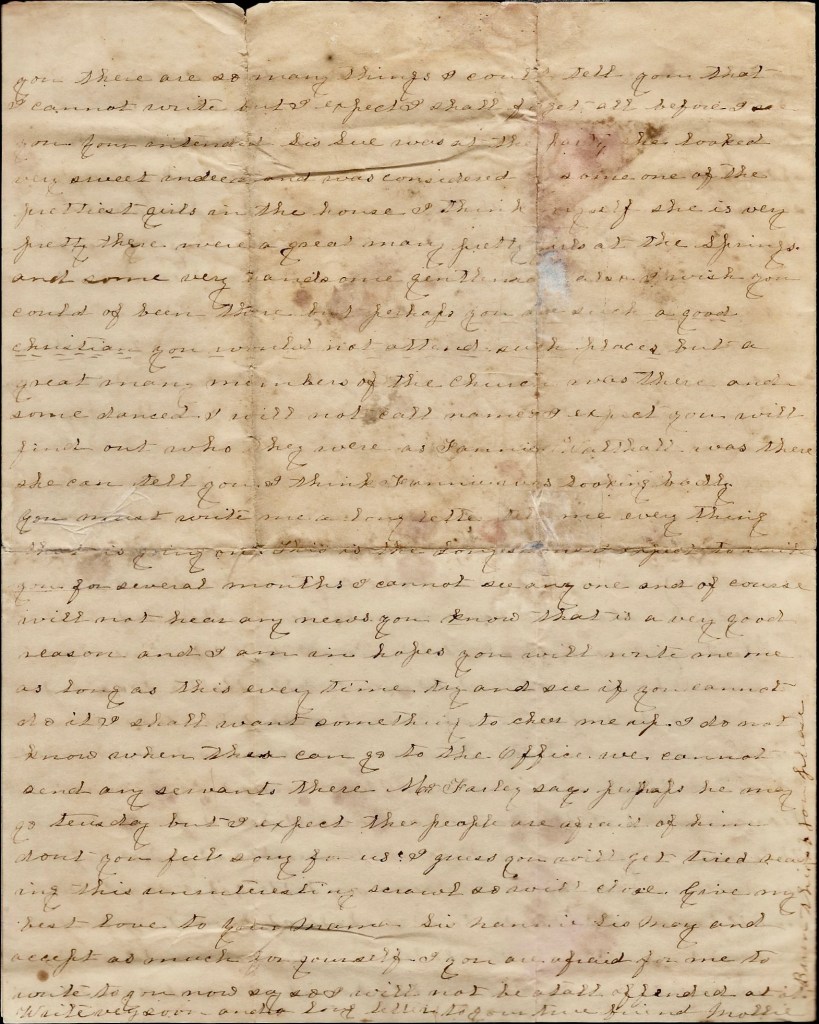 you there are so many things I could tell you that
I cannot write but I expect I shall forget all before I see
you your intended Sis Sue was at the party she looked
very sweet indeed and was considered by some one of the
prettiest girls in the house I think myself she is very
pretty there were a great many pretty girls at the Springs
and some very handsome gentlemen also I wish you
could of been there but perhaps you are such a good
christian you would not attend such places but a
great many members of the church was there and
some danced I will not call names I expect you will
find out who they were as Fannie was there
she can tell you I think Fannie was looking badly
you must write me a long letter tell me every thing
that is going on. This is the longest one I expect to write
you for several months I cannot see any one and of course
will not hear any news you know that is a very good
reason and I am in hopes you will write me me
as long as this every time. try and see if you cannot
do it I shall want something to cheer me up. I do not
know when thea can go to the Office we cannot
send any servants there Mr Farley says perhaps he may
go tuesday but I expect the people are afraid of him
dont you feel sory for us? I guess you will get tired read
ing this uninteresting scrawl so will close. Give my
best love to your mama Sis Nannie Sis Mag and
accept as much for yourself. I you are afraid for me to
write to you now say so I will not be atall offended at it
Write very soon and a long letter to your true friend Mollie